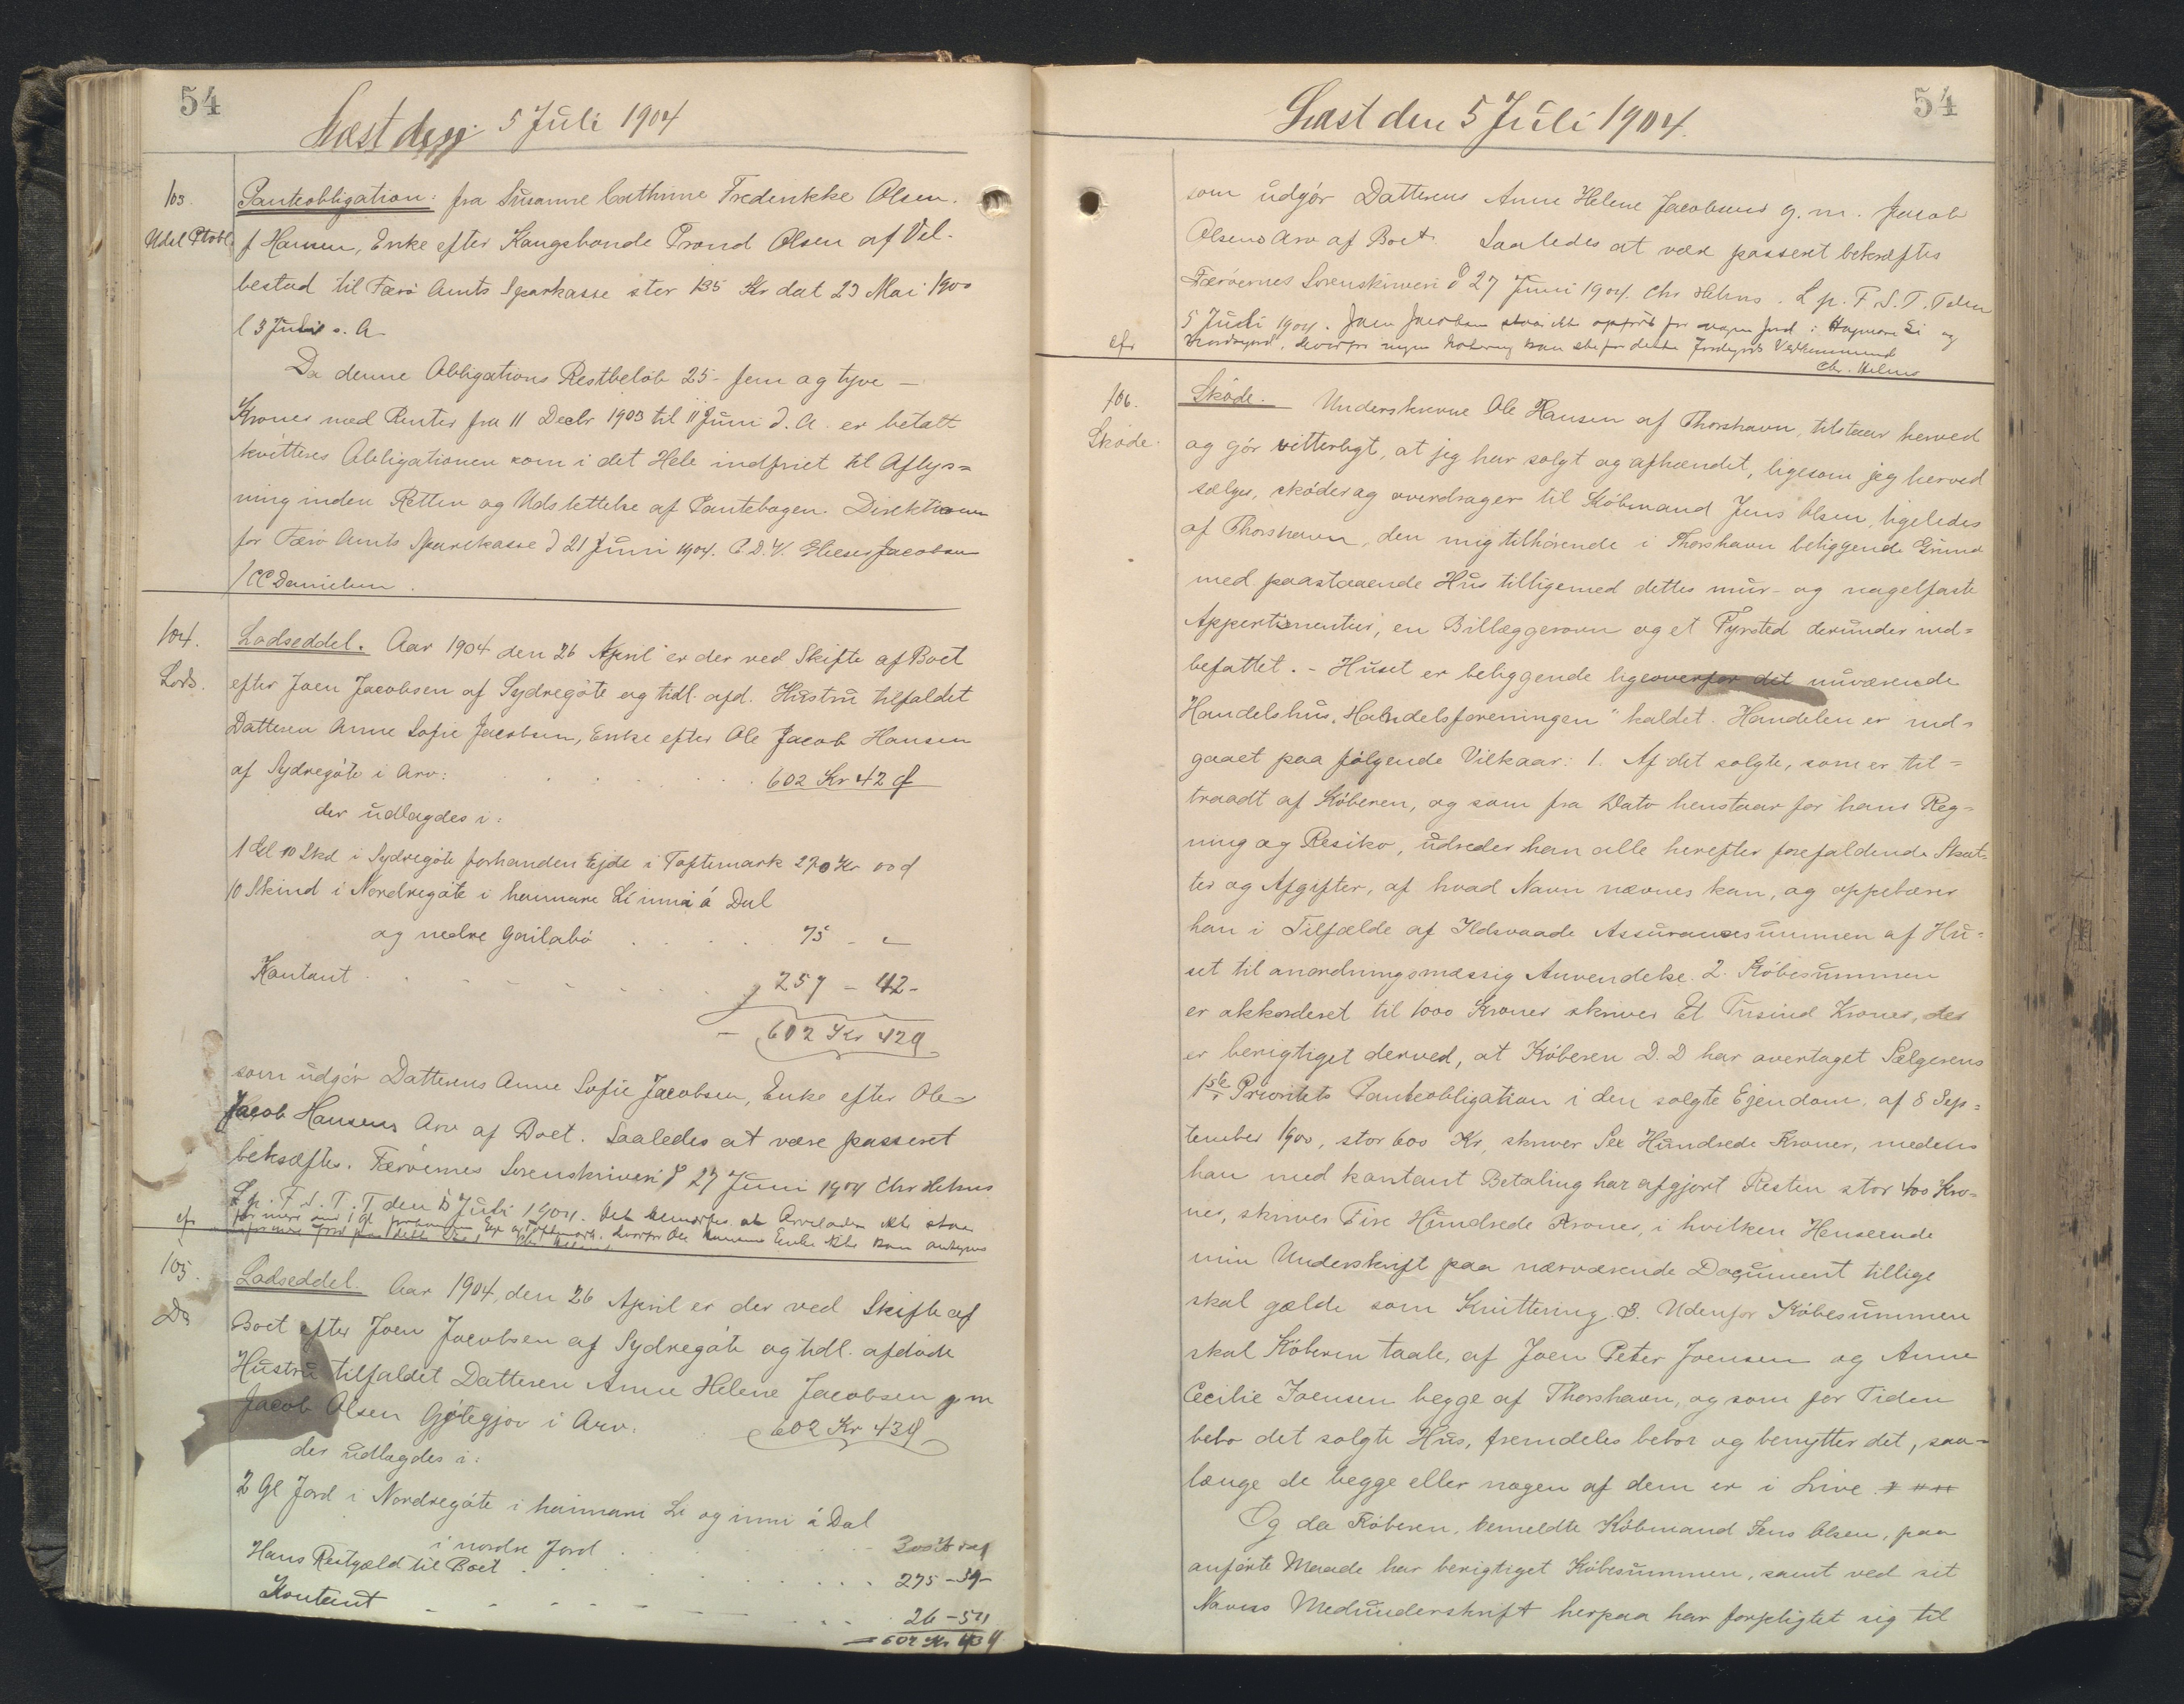 54
Læst den 5 Juli 1904
103.
Udsl Ptobl.
Panteobligation: fra Susanne Cathrine Frederikke Olsen
f Hansen, Enke efter Kongsbonde Trond Olsen af Vel-
bestad til Færø Amts Sparkasse stor 135 Kr dat 23 Mai 1900
l 3 Juli s. A.
Da denne Obligations Restbeløb 25 - fem og tyve -
Kroner med Renter fra 11 Decbr 1903 til 11 Juni d. A. er betalt
kvitteres Obligationen som i det Hele indfriet til Aflys=
ning inden Retten og Udslettelse af Pantebogen. Direktionen
for Færø Amts Sparekasse d 21 Juni 1904. Elieser Jacobsen
/ CC Danielsen.
104.
Lods.
Lodseddel. Aar 1904 den 26 April er der ved Skifte af Boet
efter Joen Jacobsen af Sydregöte og tidl. afd. Hustru tilfaldet
Datteren Anne Sofie Jacobsen, Enke efter Ole Jacob Hansen
af Sydregöte i Arv: 602 Kr 42 ø
der udlagdes i:
1 Gl 10 Skd i Sydregöte forhanden Ejde i Toftemark 270 Kr 00 ø
10 Skind i Nordregöte i heimare Li inni á Dal
og nedre Geilabö 75 - "
Kontant 257 - 42 -
- 602 Kr 42 ø
som udgør Datterens Anne Sofie Jacobsen, Enke efter Ole
Jacob Hansens Arv af Boet. Saaledes at være passeret
bekræftes. Færöernes Sorenskriveri d 27 Juni 1904 Chr Helms
L p. F. S. T. T den 5 Juli 1904. Det bemærkes at Arveladeren ikke staar
cfr
105.
Do
Lodseddel. Aar 1904, den 26 April er der ved Skifte af
Boet efter Joen Jacobsen af Sydregöte og tidl. afdöde
Hustru tilfaldet Datteren Anne Helene Jacobsen g m
Jacob Olsen Götegjov i Arv: 602 Kr 43 ø
der udlagdes i:
2 Gl Jord i Nordregöte i heimari Li og inni á Dal
i nordre Jord 300 Kr
Hans Restgæld til Boet 275 - 89 -
Kontant 26 - 54
602 Kr 43 ø
54
Læst den 5 Juli 1904.
som udgör Datterens Anne Helene Jacobsens g. m. Jacob
Olsens Arv af Boet. Saaledes at være passeret bekræftes
Færöernes Sorenskriveri d 27 Juni 1904. Chr Helms. L p. F. S. T. T den
5 Juli 1904. Joen Jacobsen staar ikke opført for nogen Jord i Li og
cfr
Chr. Helms
106.
Skøde.
Skøde. Underskrevne Ole Hansen af Thorshavn, tilstaar herved
og gör vitterligt, at jeg har solgt og afhændet, ligesom jeg herved
sælger, skøder og overdrager til Købmand Jens Olsen, ligeledes
af Thorshavn, den mig tilhørende i Thorshavn beliggende Grund
med paastaaende Hus tilligemed dettes mur- og nagelfaste
Appertinentier, en Bilæggerovn og et Fyrsted derunder ind=
befattet. - Huset er beliggende ligeoverfor det nuværende
Handelshus, "Handelsforeningen" kaldet. Handelen er ind=
gaaet paa følgende Vilkaar: 1. Af det solgte, som er til=
traadt af Køberen, og som fra Dato henstaar for hans Reg=
ning og Resiko, udreder han alle herefter forefaldende Skat=
ter og Afgifter, af hvad Navn nævnes kan, og oppebærer
han i Tilfælde af Ildsvaade Assurancesummen af Hu=
set til anordningsmæssig Anvendelse. 2. Købesummen
er akkorderet til 1000 Kroner skriver Et Tusind Kroner, der
er berigtiget derved, at Køberen D. D har overtaget Sælgerens
1ste Prioritets Panteobligation i den solgte Ejendom, af 8 Sep=
tember 1900, stor 600 Kr, skriver Sex Hundrede Kroner, medens
han med kontant Betaling har afgjort Resten stor 400 Kro=
ner, skriver Fire Hundrede Kroner, i hvilken Henseende
min Underskrift paa nærværende Document tillige
skal gælde som Kvittering. 3. Udenfor Købesummen
skal Køberen taale, af Joen Peter Joensen og Anne
Cecilie Joensen begge af Thorshavn, og som for Tiden
bebo det solgte Hus, fremdeles bebor og benytter det, saa-
længe de begge eller nogen af dem er i Live.
Og da Køberen, bemeldte Købmand Jens Olsen, paa
anførte Maade har berigtiget Købesummen, samt ved sit
Navns Medunderskrift herpaa har forpligtet sig til